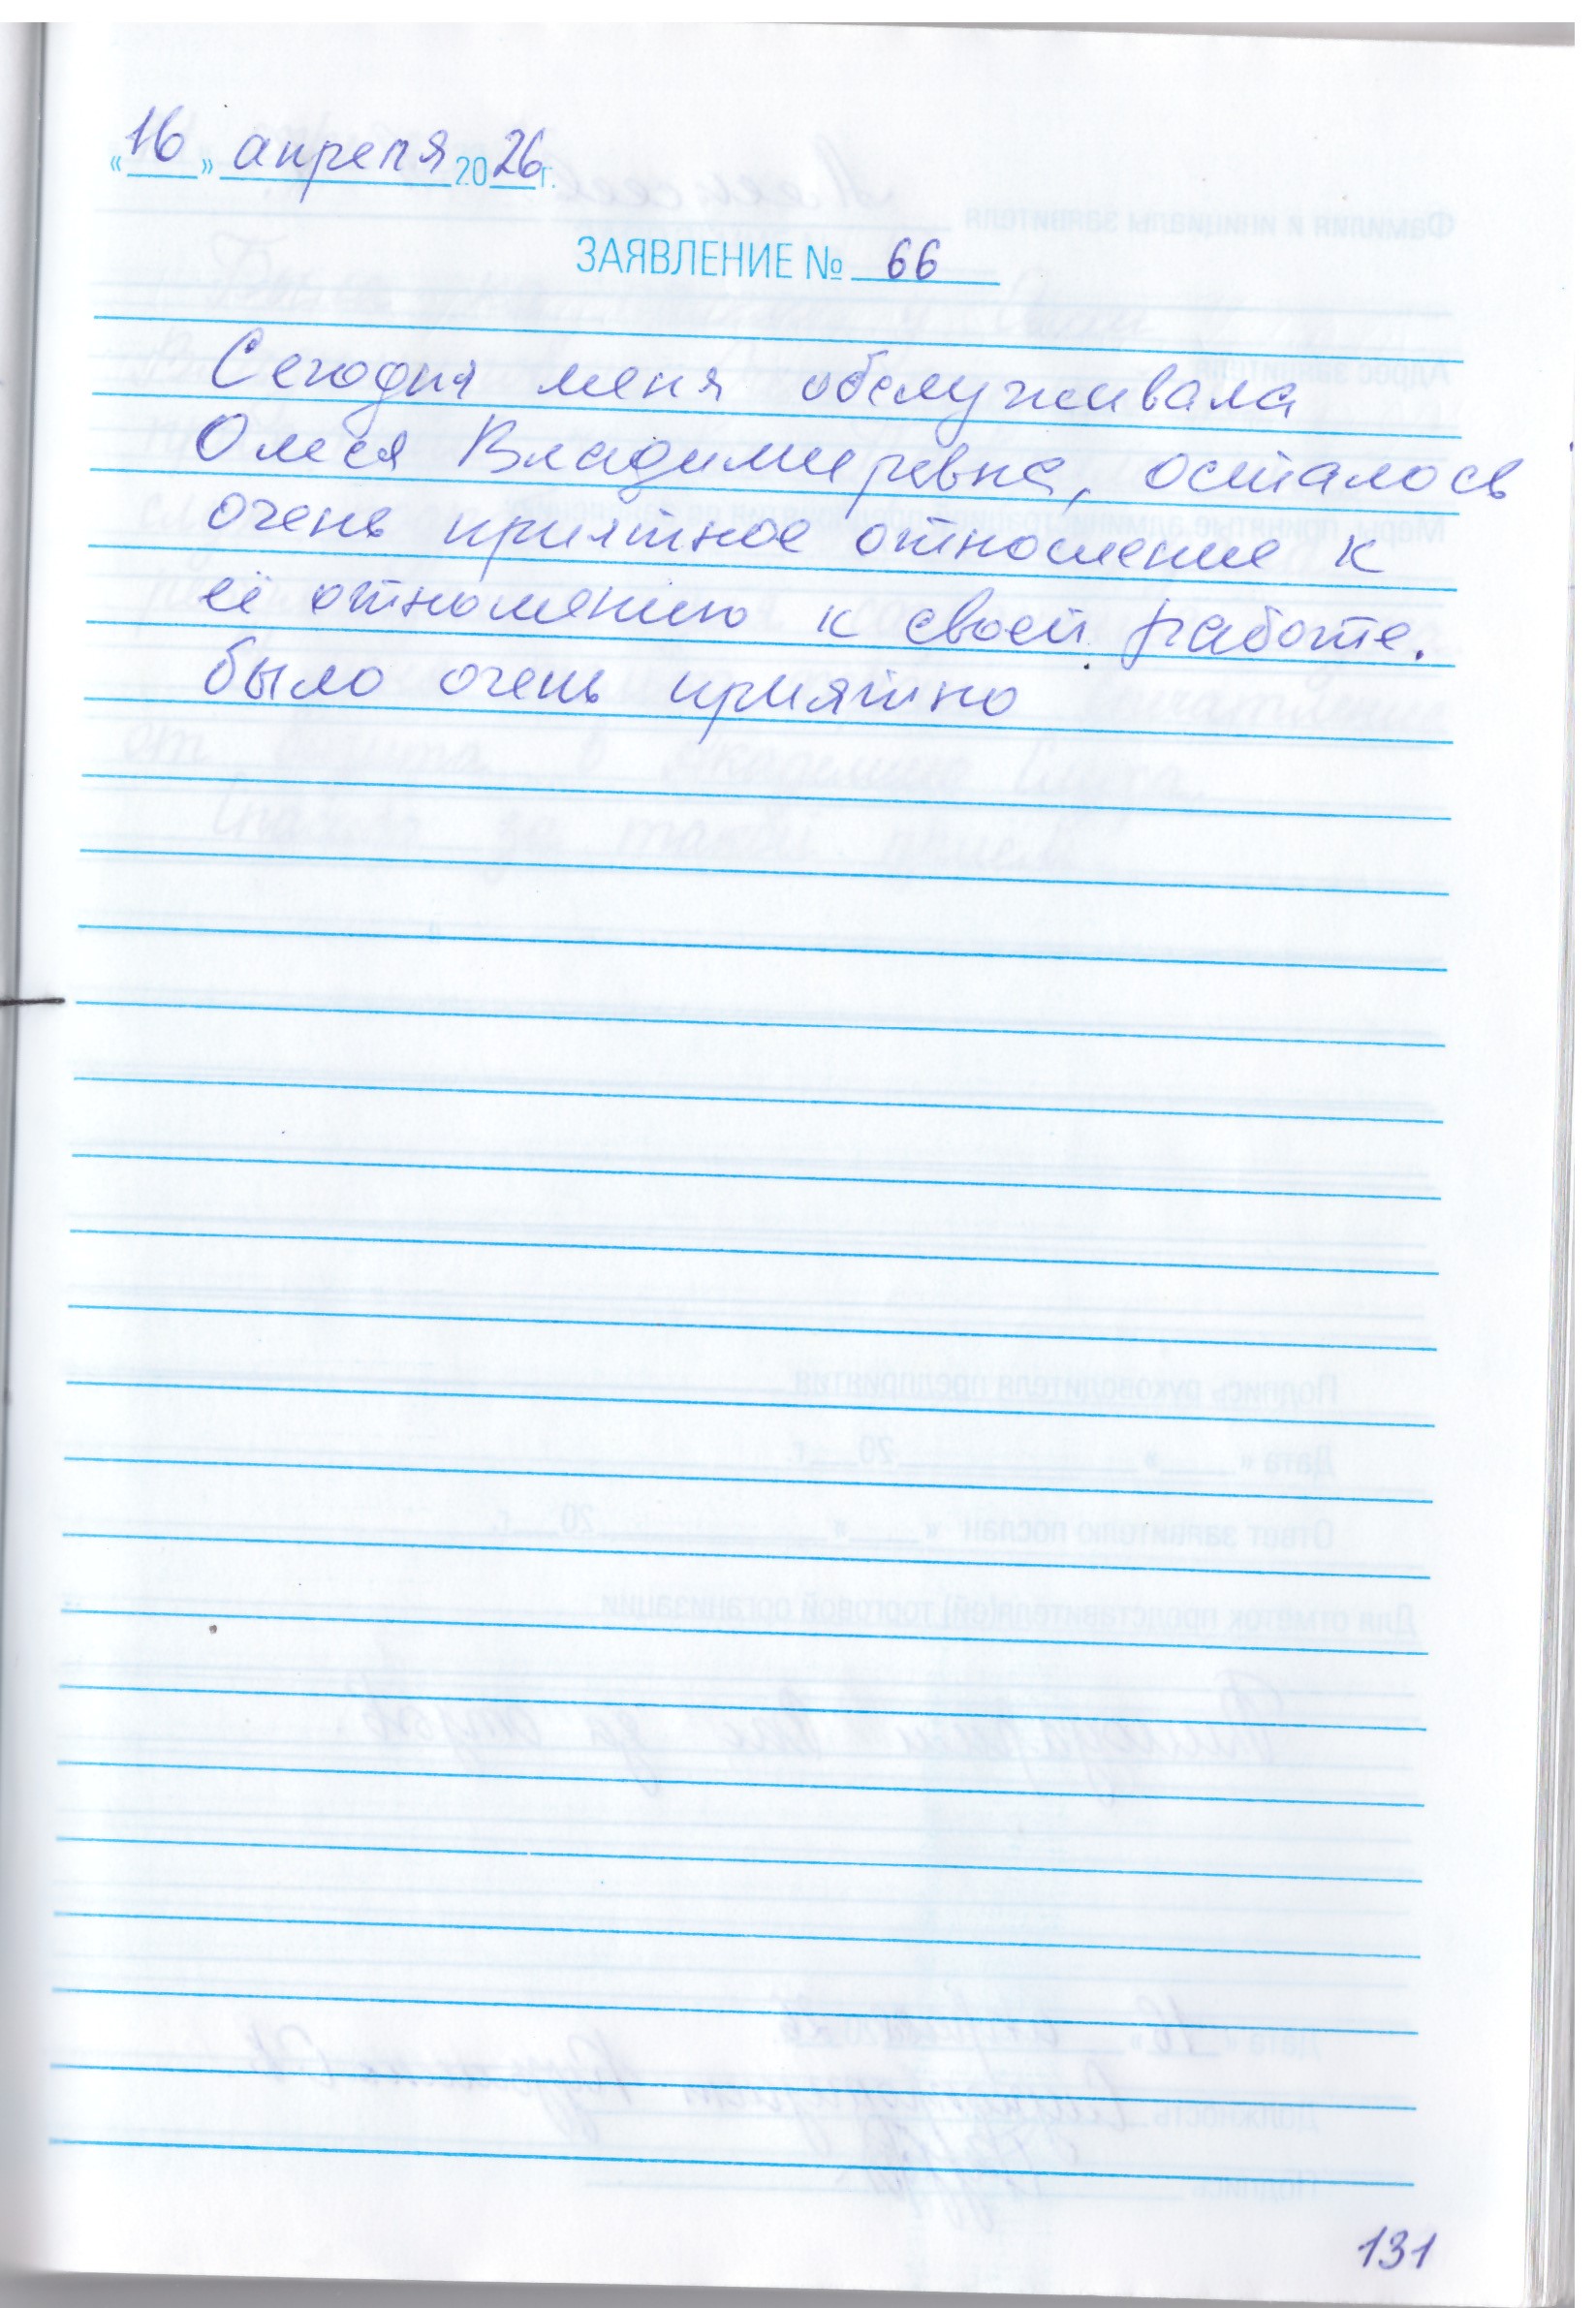 «16» апреля 2026г.
ЗАЯВЛЕНИЕ № 66
Сегодня меня обслуживала
Олеся Владимировна, осталось
очень приятное отношение к
её отношению к своей работе.
было очень приятно
131